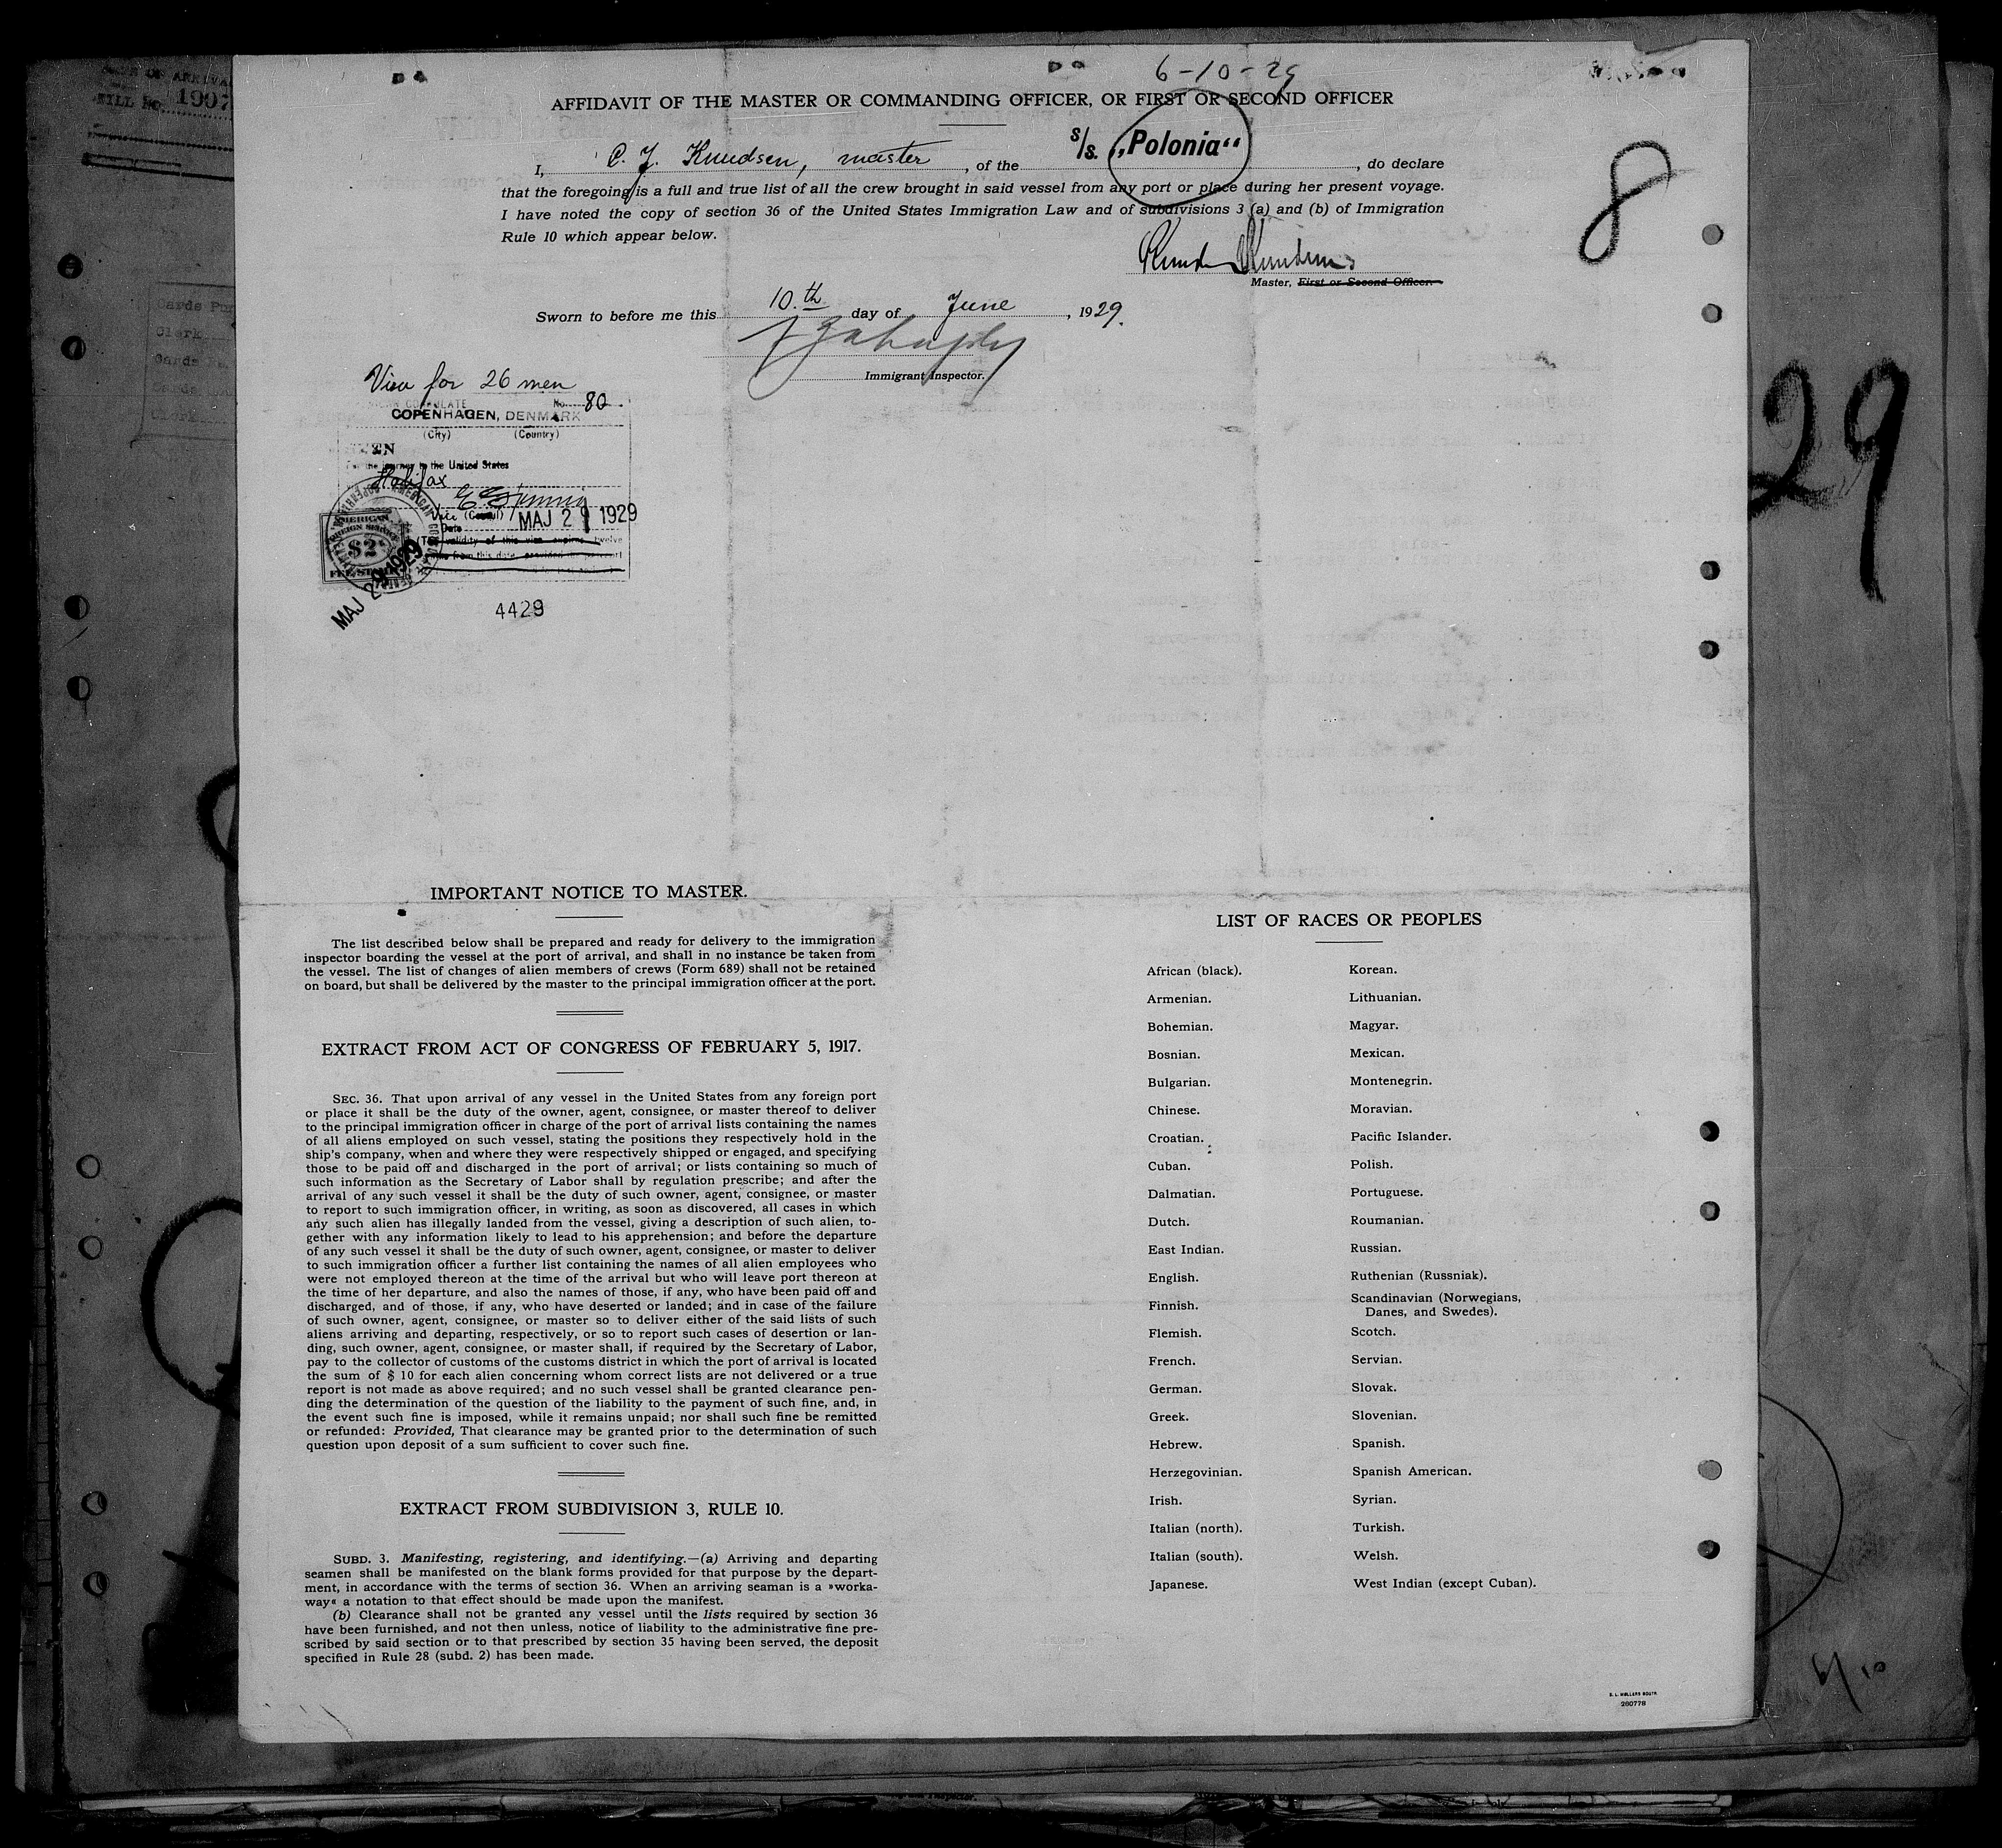 6-10-29
AFFIDAVIT OF THE MASTER OR COMMANDING OFFICER, OR FIRST OR SECOND OFFICER
I, C. J. Knudsen, master, of the s/s. „Polonia“, do declare
that the foregoing is a full and true list of all the crew brought in said vessel from any port or place during her present voyage.
I have noted the copy of section 36 of the United States Immigration Law and of subdivisions 3 (a) and (b) of Immigration
Rule 10 which appear below.
8
Master, First or Second Officer.
Sworn to before me this 10th day of June, 1929.
Immigrant Inspector.
29
1907
Visa for 26 men
No. 80.
COPENHAGEN, DENMARK
(City) (Country)
For the journey to the United States
Halifax
Vice (Consul)
MAJ 29 1929
Date
(The validity of this visa expires twelve
AMERICAN
FOREIGN SERVICE
$2
FEE STAMP
MAJ 29 1929
4429
IMPORTANT NOTICE TO MASTER.
The list described below shall be prepared and ready for delivery to the immigration
inspector boarding the vessel at the port of arrival, and shall in no instance be taken from
the vessel. The list of changes of alien members of crews (Form 689) shall not be retained
on board, but shall be delivered by the master to the principal immigration officer at the port.
EXTRACT FROM ACT OF CONGRESS OF FEBRUARY 5, 1917.
SEC. 36. That upon arrival of any vessel in the United States from any foreign port
or place it shall be the duty of the owner, agent, consignee, or master thereof to deliver
to the principal immigration officer in charge of the port of arrival lists containing the names
of all aliens employed on such vessel, stating the positions they respectively hold in the
ship's company, when and where they were respectively shipped or engaged, and specifying
those to be paid off and discharged in the port of arrival; or lists containing so much of
such information as the Secretary of Labor shall by regulation prescribe; and after the
arrival of any such vessel it shall be the duty of such owner, agent, consignee, or master
to report to such immigration officer, in writing, as soon as discovered, all cases in which
any such alien has illegally landed from the vessel, giving a description of such alien, to-
gether with any information likely to lead to his apprehension; and before the departure
of any such vessel it shall be the duty of such owner, agent, consignee, or master to deliver
to such immigration officer a further list containing the names of all alien employees who
were not employed thereon at the time of the arrival but who will leave port thereon at
the time of her departure, and also the names of those, if any, who have been paid off and
discharged, and of those, if any, who have deserted or landed; and in case of the failure
of such owner, agent, consignee, or master so to deliver either of the said lists of such
aliens arriving and departing, respectively, or so to report such cases of desertion or lan-
ding, such owner, agent, consignee, or master shall, if required by the Secretary of Labor,
pay to the collector of customs of the customs district in which the port of arrival is located
the sum of $ 10 for each alien concerning whom correct lists are not delivered or a true
report is not made as above required; and no such vessel shall be granted clearance pen-
ding the determination of the question of the liability to the payment of such fine, and, in
the event such fine is imposed, while it remains unpaid; nor shall such fine be remitted
or refunded: Provided, That clearance may be granted prior to the determination of such
question upon deposit of a sum sufficient to cover such fine.
EXTRACT FROM SUBDIVISION 3, RULE 10.
SUBD. 3. Manifesting, registering, and identifying.—(a) Arriving and departing
seamen shall be manifested on the blank forms provided for that purpose by the depart-
ment, in accordance with the terms of section 36. When an arriving seaman is a »worka-
way« a notation to that effect should be made upon the manifest.
(b) Clearance shall not be granted any vessel until the lists required by section 36
have been furnished, and not then unless, notice of liability to the administrative fine pre-
scribed by said section or to that prescribed by section 35 having been served, the deposit
specified in Rule 28 (subd. 2) has been made.
LIST OF RACES OR PEOPLES
African (black).
Armenian.
Bohemian.
Bosnian.
Bulgarian.
Chinese.
Croatian.
Cuban.
Dalmatian.
Dutch.
East Indian.
English.
Finnish.
Flemish.
French.
German.
Greek.
Hebrew.
Herzegovinian.
Irish.
Italian (north).
Italian (south).
Japanese.
Korean.
Lithuanian.
Magyar.
Mexican.
Montenegrin.
Moravian.
Pacific Islander.
Polish.
Portuguese.
Roumanian.
Russian.
Ruthenian (Russniak).
Scandinavian (Norwegians,
Danes, and Swedes).
Scotch.
Servian.
Slovak.
Slovenian.
Spanish.
Spanish American.
Syrian.
Turkish.
Welsh.
West Indian (except Cuban).
6/10
260778